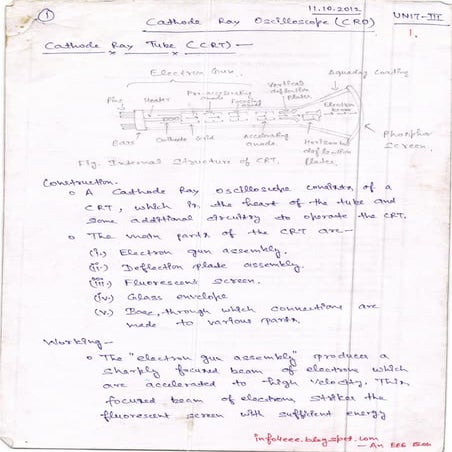 1
11.10.2012
Cathode Ray Oscilloscope (CRO)
UNIT-III
1.
Cathode Ray Tube (CRT) —
Electron Gun
Pre-accelerating anode
Focusing
Vertical deflection plates
Aquadag Coating
Pins
Heater
Electron
Base
Cathode
Grid
Accelerating anode
Horizontal deflection Plates
Phosphor Screen
Fig. Internal Structure of CRT.
Construction.
o A Cathode Ray Oscilloscope consists of a
CRT, which is the heart of the tube and
some additional circuitry to operate the CRT.
o The main parts of the CRT are —
(i.) Electron gun assembly.
(ii.) Deflection plate assembly.
(iii.) Fluorescent screen.
(iv.) Glass envelope
(v.) Base, through which connections are
made to various parts.
Working —
o The "electron gun assembly" produces a
sharply focused beam of electrons which
are accelerated to high velocity. This
focused beam of electrons strikes the
fluorescent screen with sufficient energy
info4eee.blogspot.com
— An EEE